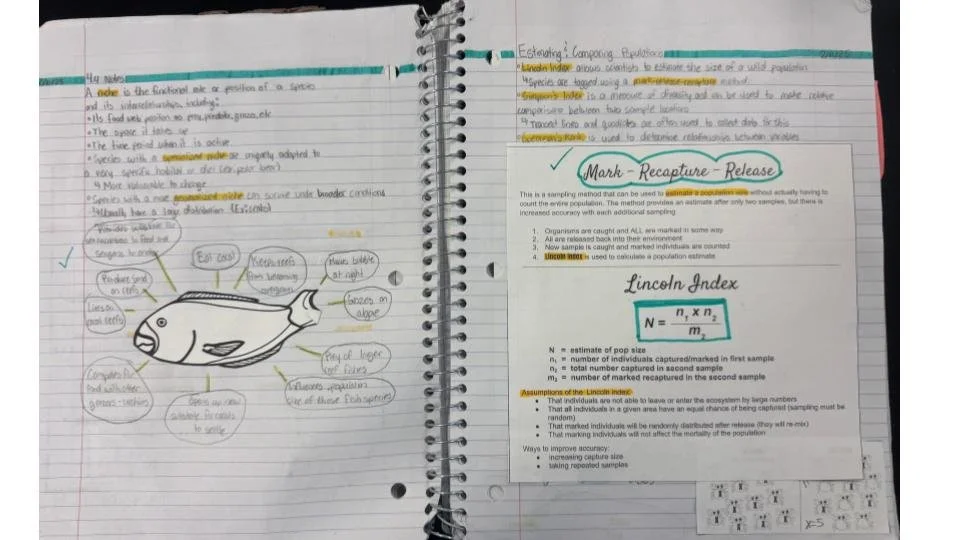 4.4 Notes
A niche is the functional role or position of a species
and its interrelationships, including:
• Its food web position
• The space it takes up
• The time period when it is active
• Species with a specialized niche are uniquely adapted to
a very specific habitat or diet (ex: polar bear)
↳ More vulnerable to change
• Species with a more generalized niche can survive under broader conditions
↳ Usually have a large distribution
Eat coral
Keeps reefs
from becoming
overgrown
Makes bubble
at night
Produce sand
on reefs
Grazes on
algae
Lives on
coral reefs
Prey of larger
reef fishes
Competes for
food with other
grazers - urchins
Opens up new
substrate for corals
to settle
Influences population
size of those fish species
Estimating & Comparing Populations
• Lincoln Index allows scientists to estimate the size of a wild population
↳ Species are tagged using a mark-release-recapture method
• Simpson's Index is a measure of diversity and can be used to make relative
comparisons between two sample locations
↳ Transect lines and quadrats are often used to collect data for this
• Spearman's Rank is used to determine relationships between variables
Mark - Recapture - Release
This is a sampling method that can be used to estimate a population size without actually having to
count the entire population. The method provides an estimate after only two samples, but there is
increased accuracy with each additional sampling
1. Organisms are caught and ALL are marked in some way
2. All are released back into their environment
3. New sample is caught and marked individuals are counted
4. Lincoln Index is used to calculate a population estimate
Lincoln Index
N = n₁ x n₂ / m₂
N = estimate of pop size
n₁ = number of individuals captured/marked in first sample
n₂ = total number captured in second sample
m₂ = number of marked recaptured in the second sample
Assumptions of the Lincoln Index:
• That individuals are not able to leave or enter the ecosystem by large numbers
• That all individuals in a given area have an equal chance of being captured (sampling must be
random)
• That marked individuals will be randomly distributed after release (they will re-mix)
• That marking individuals will not affect the mortality of the population
Ways to improve accuracy:
• increasing capture size
• taking repeated samples
x=5